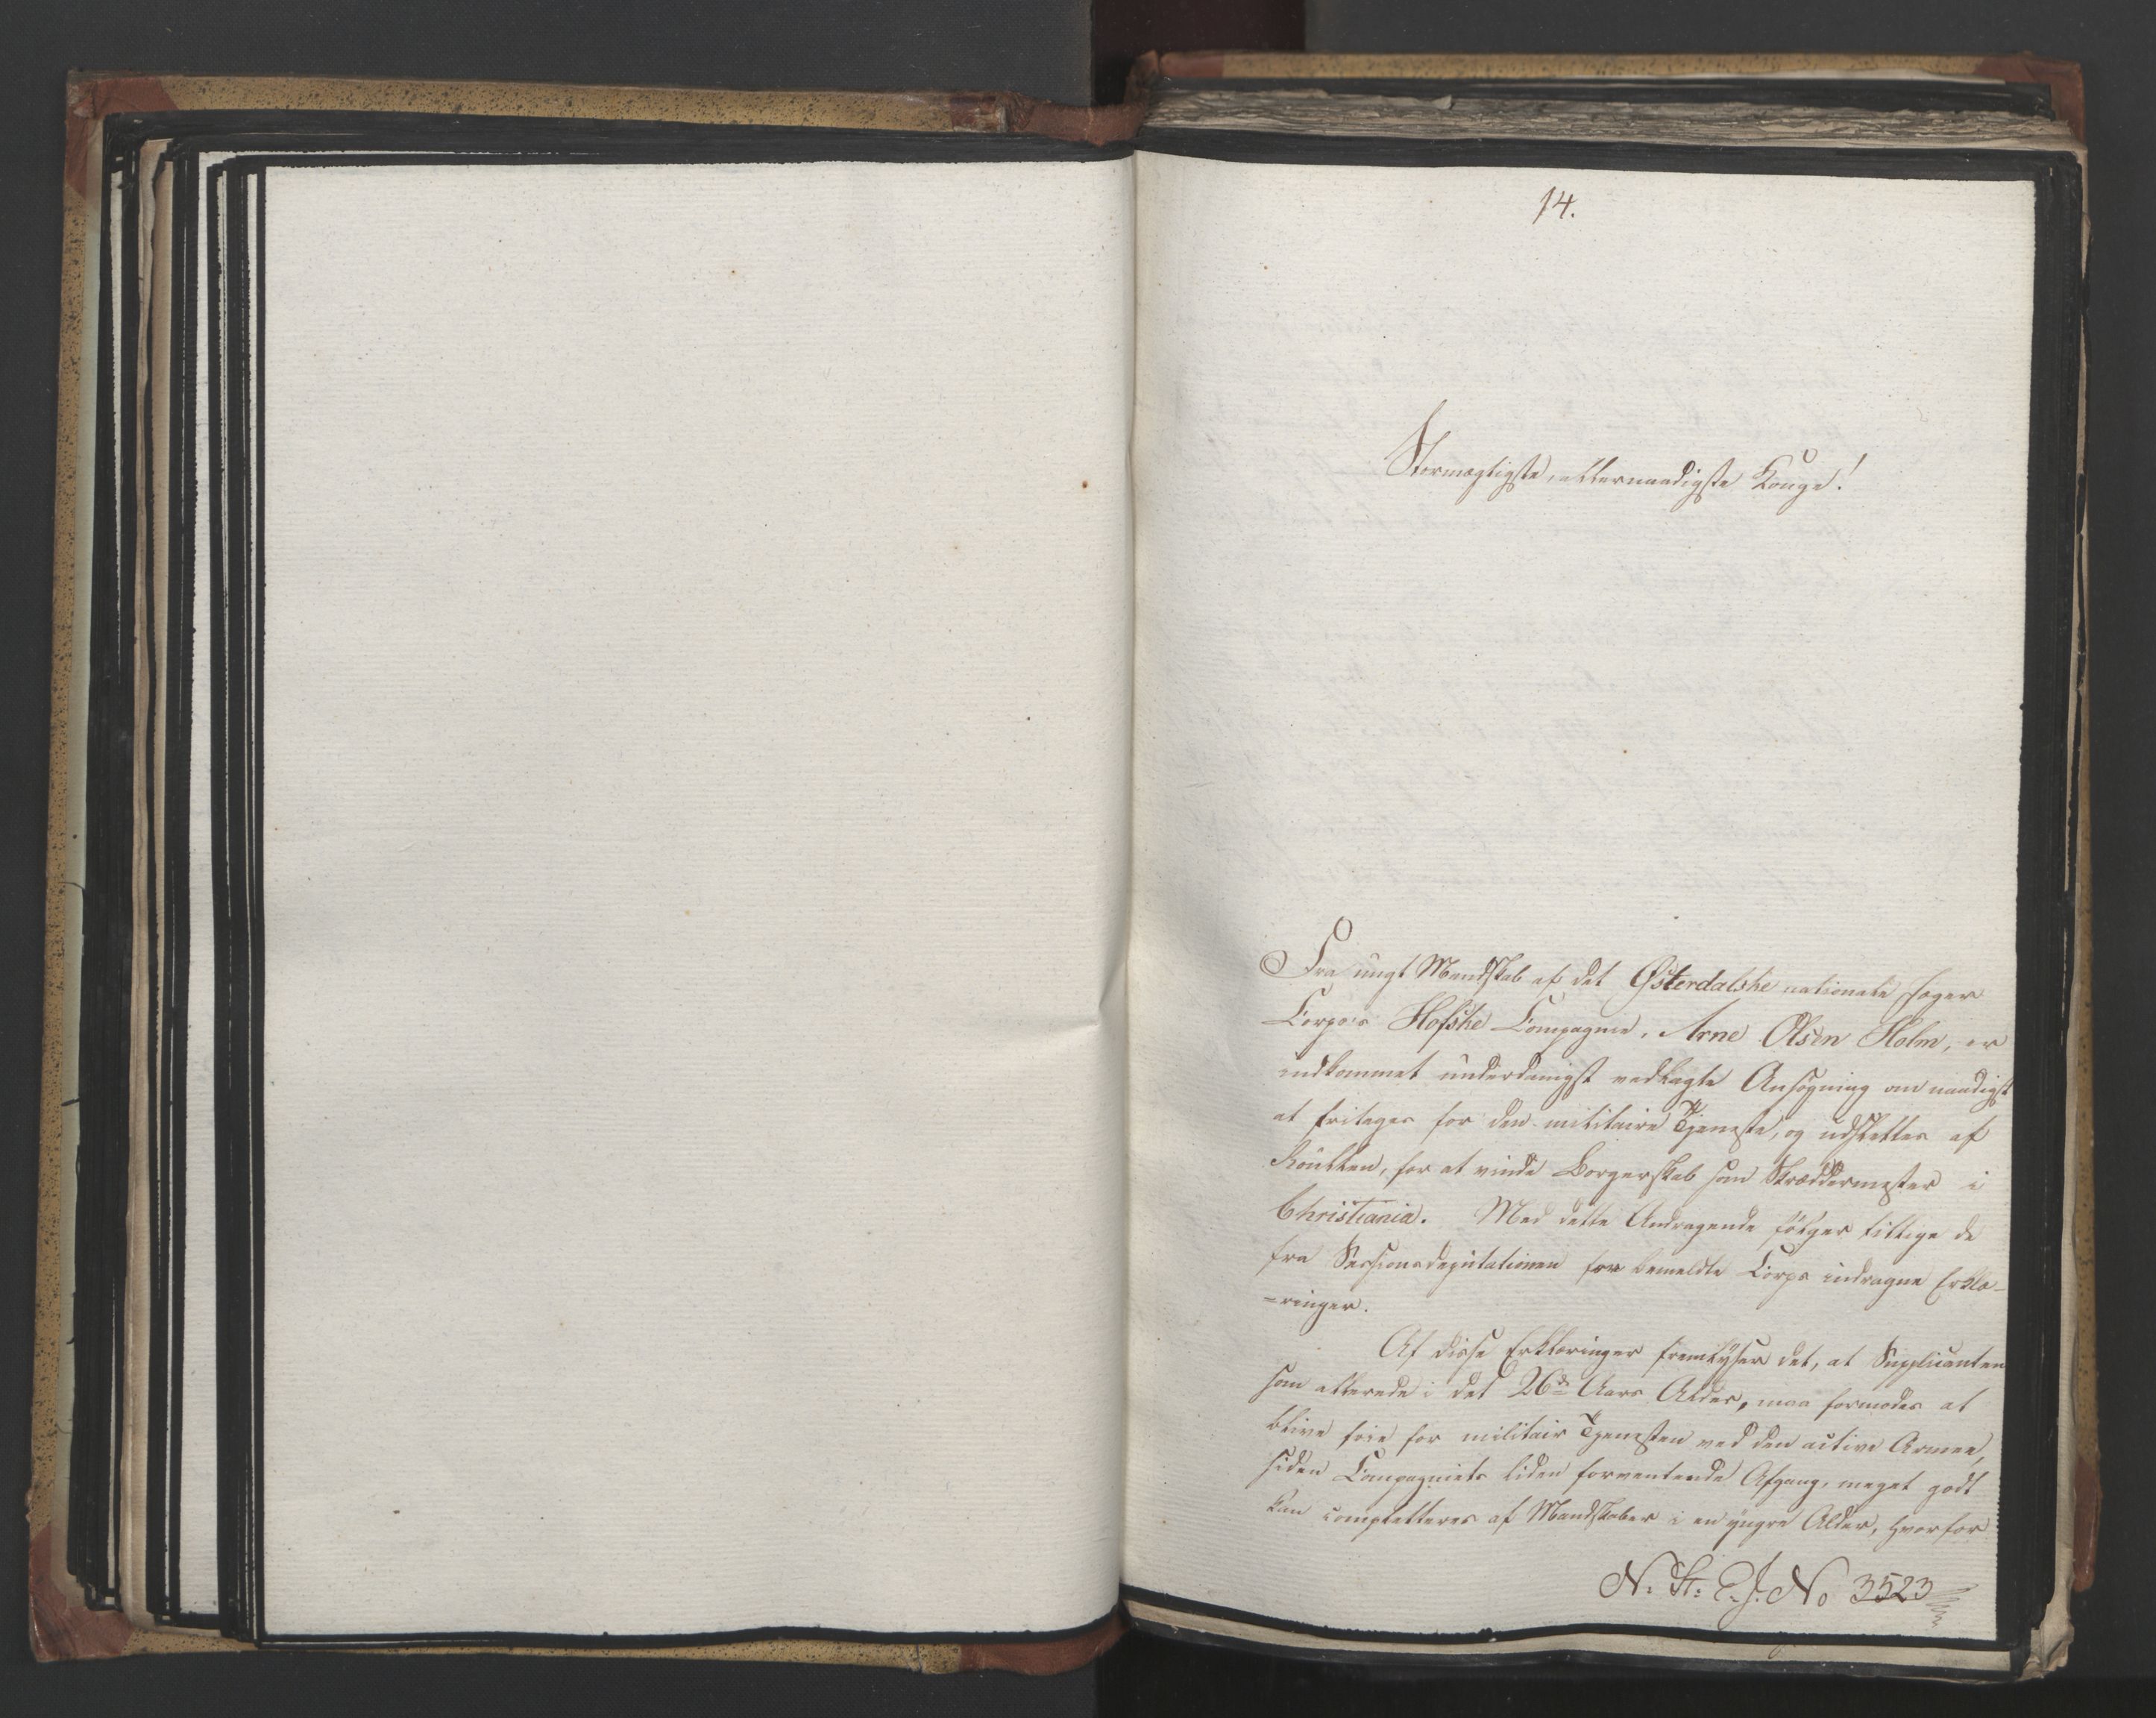 14.
Stormægtigste, allernaadigste Konge!
Fra ungt Mandskab af det Østerdalske nationale Jæger
Corps's Hofske Compagnie, Arne Olsen Holm, er
indkommet underdanigst vedlagte Ansøgning om naadigst
at fritages for den militaire Tjeneste, og udslettes af
Roullen, for at vinde Borgerskab som Skræddermester i
Christiania. Med dette Andragende følger tillige de
fra Sessionsdeputationen for bemeldte Corps indragne Erklæ-
=ringer.
Af disse Erklæringer fremlyser det, at Supplicanten
som allerede i det 26de Aars Alder, maa formodes at
blive frie for militair Tjenesten ved den active Armee,
siden Compagniets liden forventende Afgang, meget godt
kan completteres af Mandskaber i en yngre Alder, hvorfor
N. St: E. J. No 3523